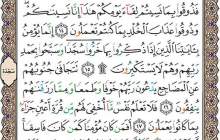 فَذُوقُوا۟ بِمَا نَسِيتُمْ لِقَآءَ يَوْمِكُمْ هَٰذَآ إِنَّا نَسِينَٰكُمْ
وَذُوقُوا۟ عَذَابَ ٱلْخُلْدِ بِمَا كُنتُمْ تَعْمَلُونَ ١٤ إِنَّمَا يُؤْمِنُ
بِـَٔايَٰتِنَا ٱلَّذِينَ إِذَا ذُكِّرُوا۟ بِهَا خَرُّوا۟ سُجَّدًا وَسَبَّحُوا۟ بِحَمْدِ
رَبِّهِمْ وَهُمْ لَا يَسْتَكْبِرُونَ ١٥ تَتَجَافَىٰ جُنُوبُهُمْ
عَنِ ٱلْمَضَاجِعِ يَدْعُونَ رَبَّهُمْ خَوْفًا وَطَمَعًا وَمِمَّا رَزَقْنَٰهُمْ
يُنفِقُونَ ١٦ فَلَا تَعْلَمُ نَفْسٌ مَّآ أُخْفِىَ لَهُم مِّن قُرَّةِ أَعْيُنٍ جَزَآءًۢ
بِمَا كَانُوا۟ يَعْمَلُونَ ١٧ أَفَمَن كَانَ مُؤْمِنًا كَمَن كَانَ فَاسِقًا